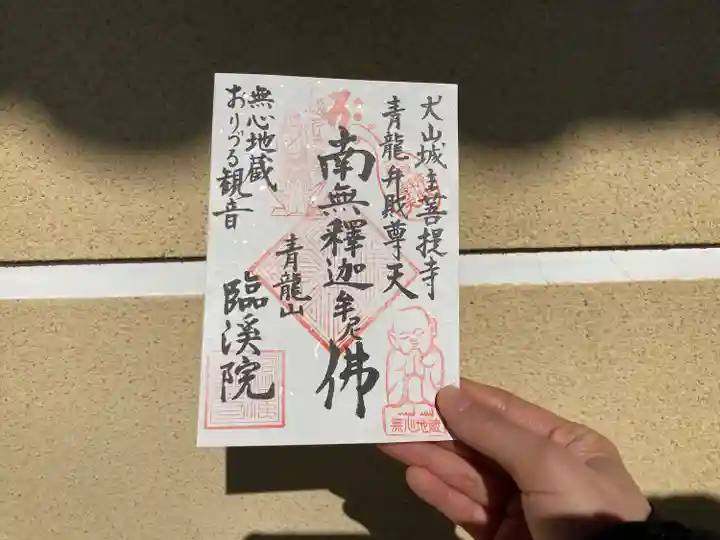 犬山城主菩提寺
青龍弁財尊天
南無釋迦牟尼佛
青龍山
臨溪院
無心地蔵
おりづる観音
無心地蔵